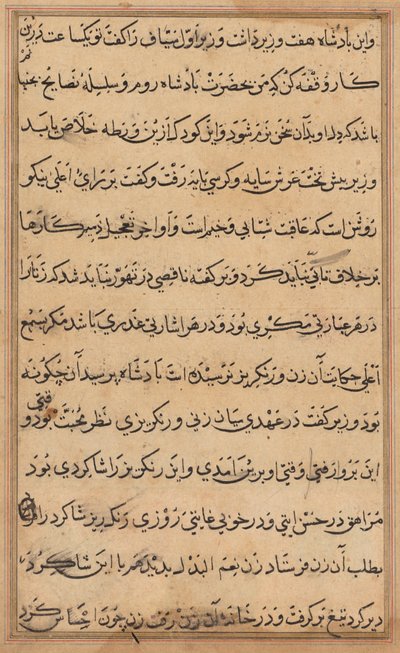 واین بادشاه هفت وزیر داشت وزیر اول سیاف را کفت تو یکساعت درین
کار وقفه کن که من بحضرت بادشاه روم و سلسله نصایح بجنبانم
باشد که دل او بدان سخن نرم شود و این کودک ازین ورطه خلاص یابد
وزیر بیش تخت عرش سایه و کرسی بایه رفت و کفت بر رای اعلی نیکو
روشن است که عاقبت شتابی وخیم است و اواخر تعجیل ذمیم کارها
بر خلاف تانی نباید کرد و بر کفته ناقصی در تهور نباید شد که زنانرا
در هر عبارتی مکری بود و در هر اشارتی غدری باشد مکر بسمع
اعلی حکایت آن زن و رنکریز نرسیده است بادشاه برسید آن چکونه
بود وزیر کفت در عهدی میان زنی و رنکریزی نظر محبت بود و فتی
این برو ارفتی و فتی او برین امدی و این رنکریز را شاکردی بود
مراهق در حسن ایتی و در خوبی غایتی روزی رنکریز شاکرد را
بطلب آن زن فرستاد زن نعم البدل بدید هم با این شاکرد
دیر کرد تیغ بر کرفت و در خانه آن زن رفت زن چون احساس کرد